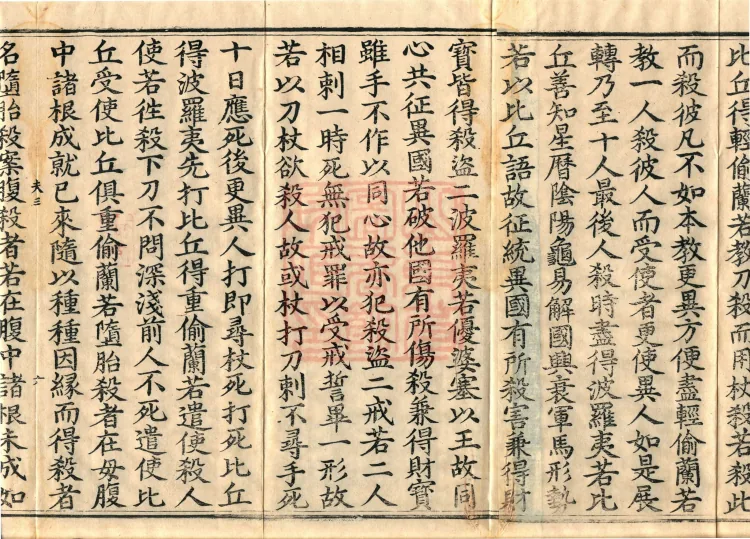 比丘得輕偷蘭若教刀殺而用杖殺若教殺此
而殺彼凡不如本教更異方便盡輕偷蘭若
教一人殺彼人而受使者更使異人如是展
轉乃至十人最後人殺時盡得波羅夷若比
丘善知星曆陰陽龜易解國興衰軍馬形勢
若以比丘語故征統異國有所殺害兼得財
寶皆得殺盜二波羅夷若優婆塞以王故同
心共征異國若破他國有所傷殺兼得財寶
雖手不作以同心故亦犯殺盜二戒若二人
相刺一時死無犯戒罪以受戒誓畢一形故
若以刀杖欲殺人故或杖打刀刺不尋手死
十日應死後更異人打即尋杖死打死比丘
得波羅夷先打比丘得重偷蘭若遣使殺人
使若徃殺下刀不問深淺前人不死遣使比
丘受使比丘俱重偷蘭若墮胎殺者在母腹
中諸根成就已來隨以種種因緣而得殺者
夫三
六
名墮胎殺案腹殺者若在腹中諸根未成如